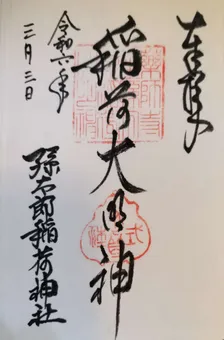 奉拝
藥師寺
稲荷大明神
令和六年
三月三日
孫太郎稲荷神社